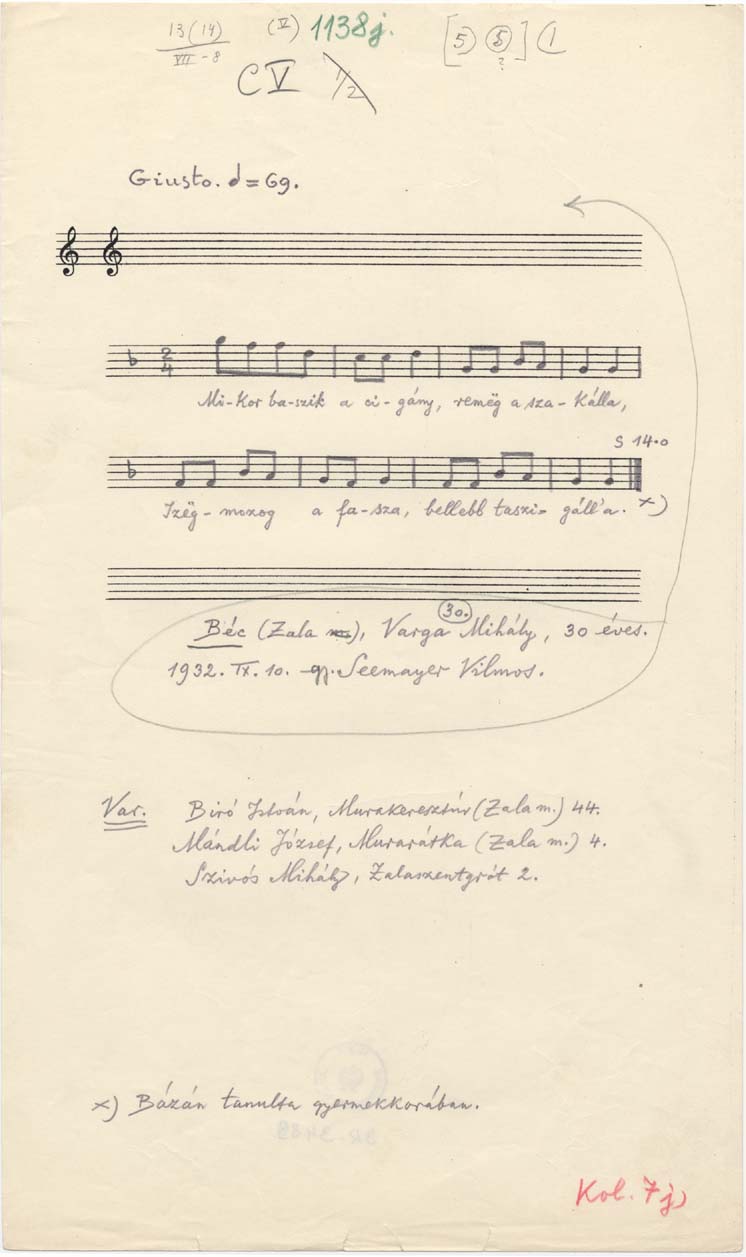 13(14) (V) 1138j. [5) (5)] (1
VII-8 ?
CV 1/2
Giusto. = 69.
2
4
Mi-kor ba-szik a ci-gány, remëg a sza-kálla,
S 14.0
Izëg-mozog a fa-sza, bellebb taszi-gáll'a. x)
30.
Béc (Zala m.), Varga Mihály, 30 éves.
1932. IX. 10. gy. Seemayer Vilmos.
Var. Biró István, Murakeresztúr (Zala m.) 44.
Mándli József, Murarátka (Zala m.) 4.
Szivós Mihály, Zalaszentgrót 2.
x) Bázán tanulta gyermekkorában.
Kol. 7j)